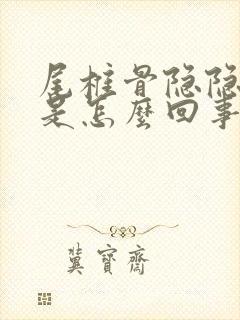 尾椎骨隐隐
是怎麽回事
冀寳齋